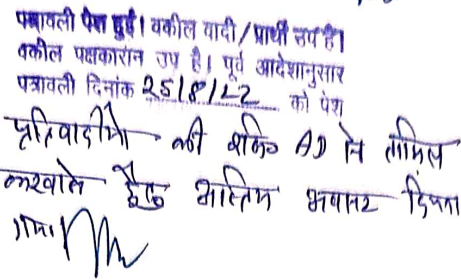 पत्रावली पेश हुई। वकील वादी/प्रार्थी उप है।
वकील पक्षकारान उप है। पूर्व आदेशानुसार
पत्रावली दिनांक 25/8/22 को पेश
प्रतिवादीगण की AD से तामिल
करवाने हेतु अन्तिम अवसर दिया
गया